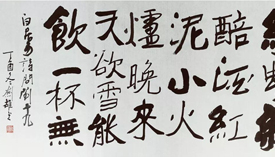 醅酒紅
泥小火
爐晚來
天欲雪能
飲一杯無
白居易詩問劉十九
丁酉冬